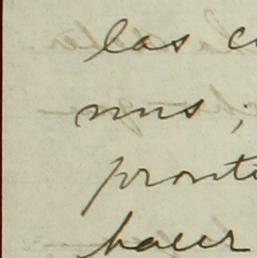 las c
mns;
pronti
hacer